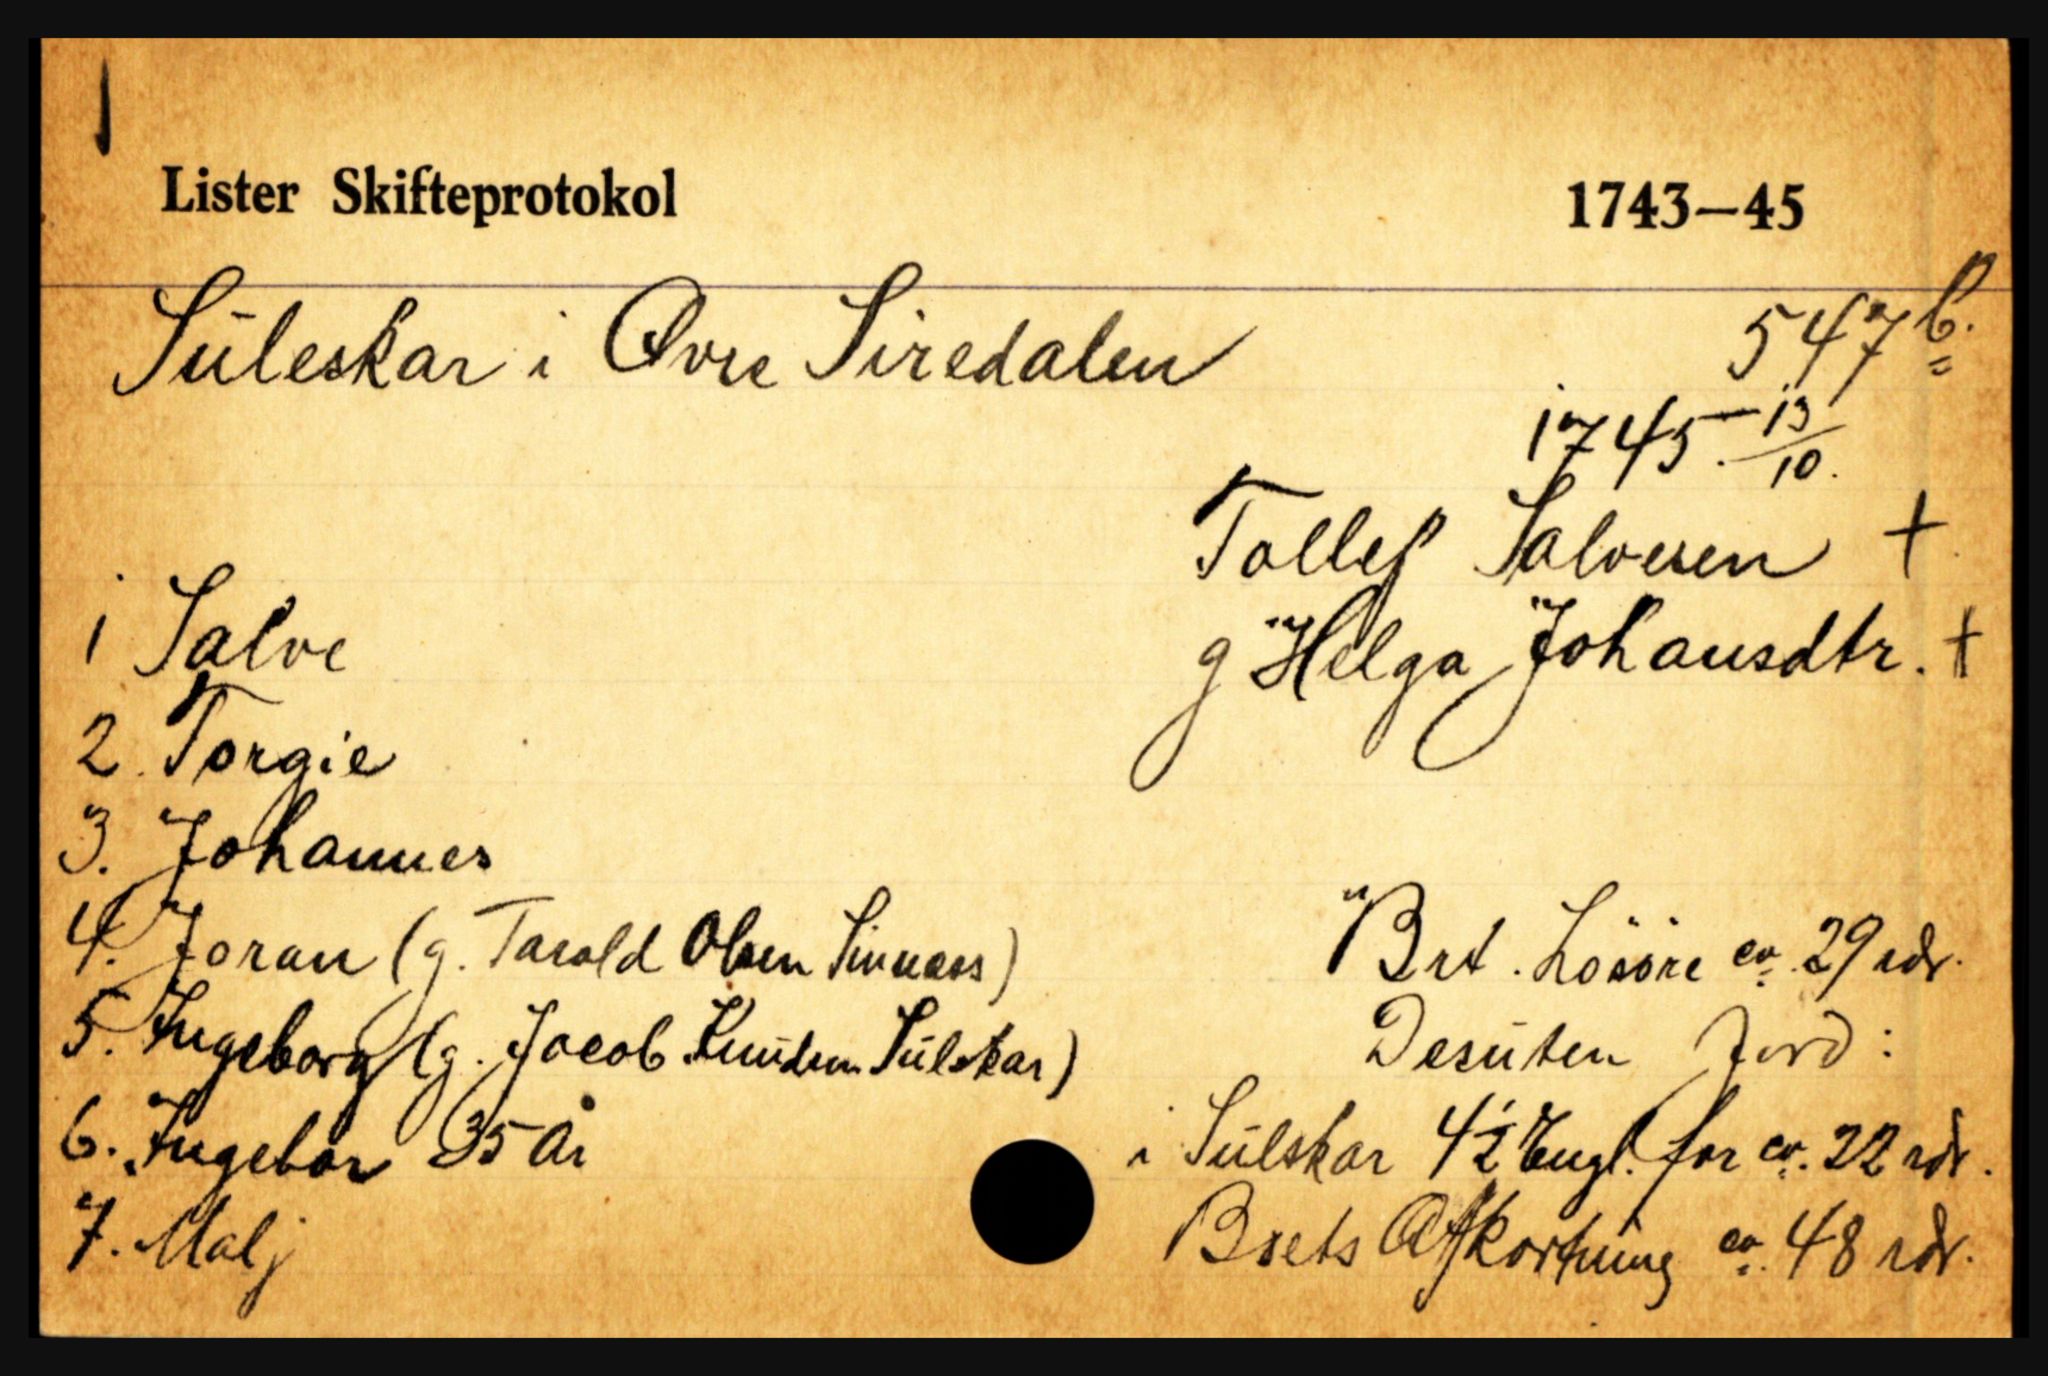 Lister Skifteprotokol 1743—45
Suleskar i Øvre Siredalen 547 b.
1745. 13/10.
Tollef Salvesen †
1 Salve
g Helga Johansdtr. †
2. Torgie
3. Johannes
4. Joran (g. Tarald Olsen Sinnes)
Brt. Løsøre ca. 29 rdr.
5. Ingeborg (g. Jacob Knudsen Sulskar)
Desuten Jord:
6. Ingebor 35 År
i Sulskar 4½ Engl. for ca. 22 rdr.
7. Malj
Boets Afkortning ca. 48 rdr.